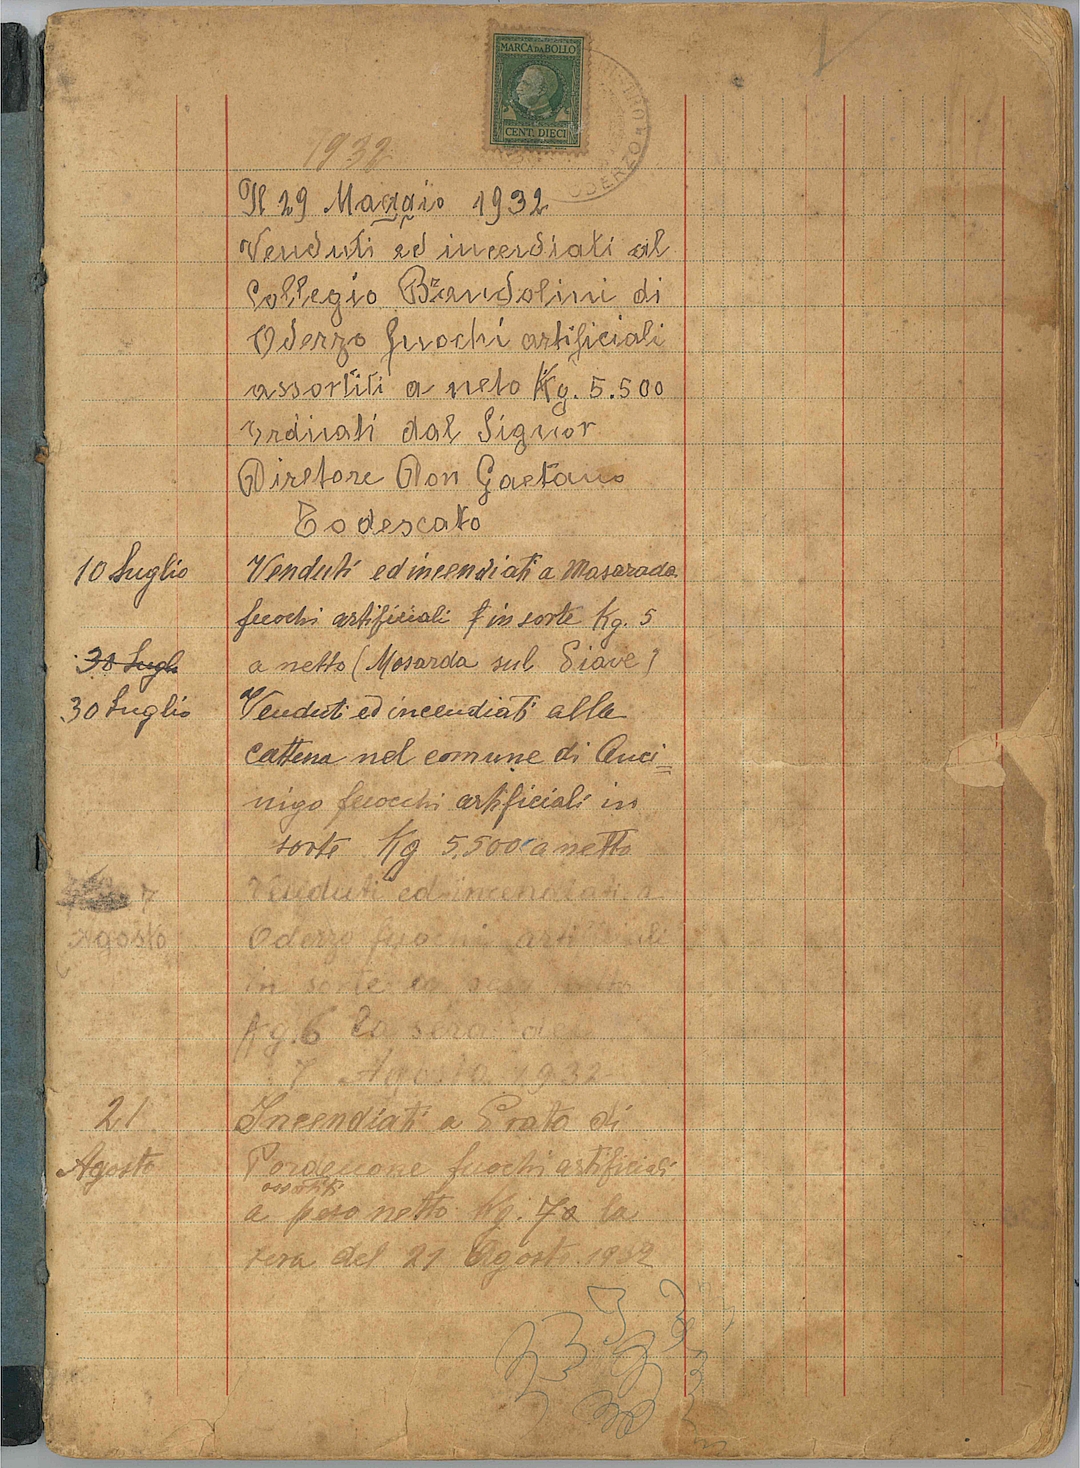 MARCA DA BOLLO
CENT. DIECI
ODERZO
1932
Il 29 Maggio 1932
Venduti ed incendiati al
Collegio Brandolini di
Oderzo fuochi artificiali
assortiti a neto Kg. 5.500
ordinati dal Signor
Diretore Don Gaetano
Todescato
10 Luglio Venduti ed incendiati a Masarada
fuochi artificiali in sorte Kg. 5
30 Lugl a netto (Mosarda sul Piave)
30 Luglio Venduti ed incendiati alla
cattena nel comune di Anci=
nigo fuocchi artificiali in
sorte Kg 5,500 a netto
7 Venduti ed incendiati a
Agosto Oderzo fuochi artificiali
in sorte a peso netto
Kg. 6 la sera del
7 Agosto 1932
21 Incendiati a Prata di
Agosto Pordenone fuochi artificiali
assortiti
a peso netto Kg. 7 la
sera del 21 Agosto 1932